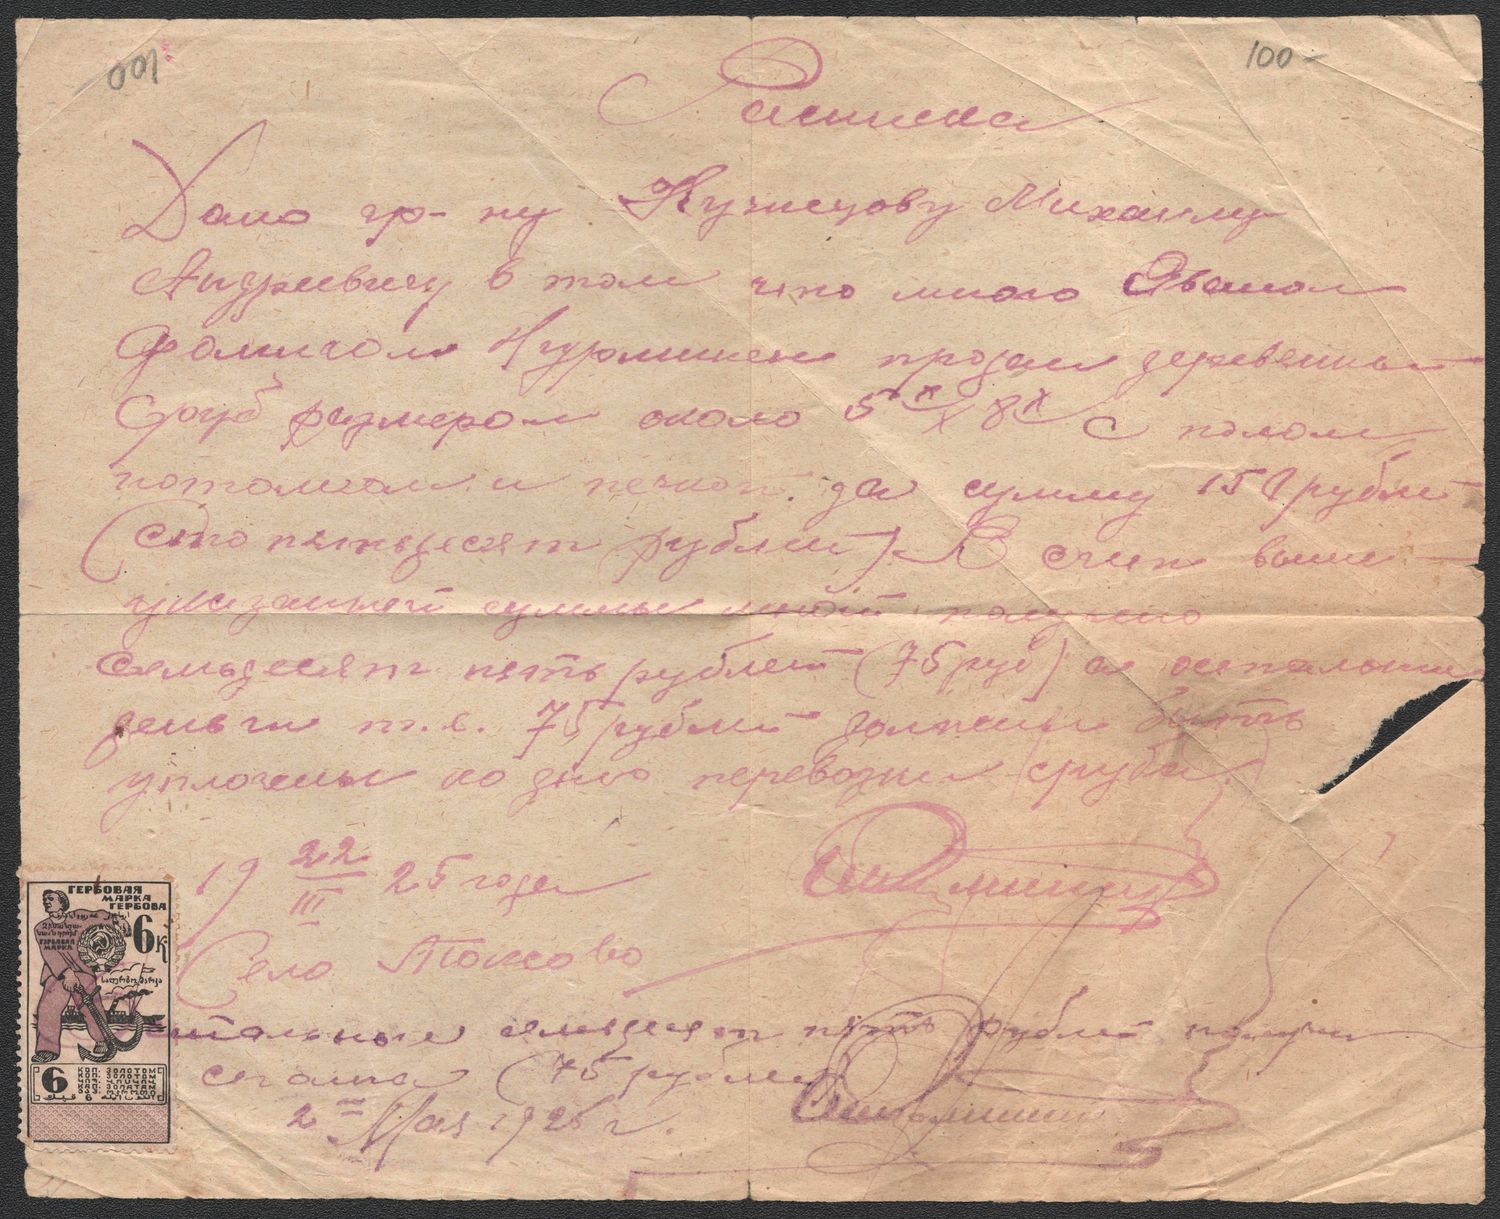 100
100-
Расписка
Дана гр-ну Кузнецову Михаилу
Андреевичу в том что мною Иваном
Фомичом продан деревенный
сруб размером около 5 х 8 с полом,
потолком и печкой. за сумму 150 рублей
(сто пятьдесят рублей). В счет выше-
указанной суммы мной получено
семьдесят пять рублей (75 руб) а остальные
деньги т.е. 75 рублей должны быть
уплочены ко дню перевозки сруба.
19 22/III 25 года
Село Токсово
семьдесят пять рублей получил
сполна (75 рублей)
2 Мая 1925 г.
ГЕРБОВАЯ
МАРКА
ГЕРБОВА
6 К
ГЕРБОВАЯ
МАРКА
6
КОП. ЗОЛОТОМ